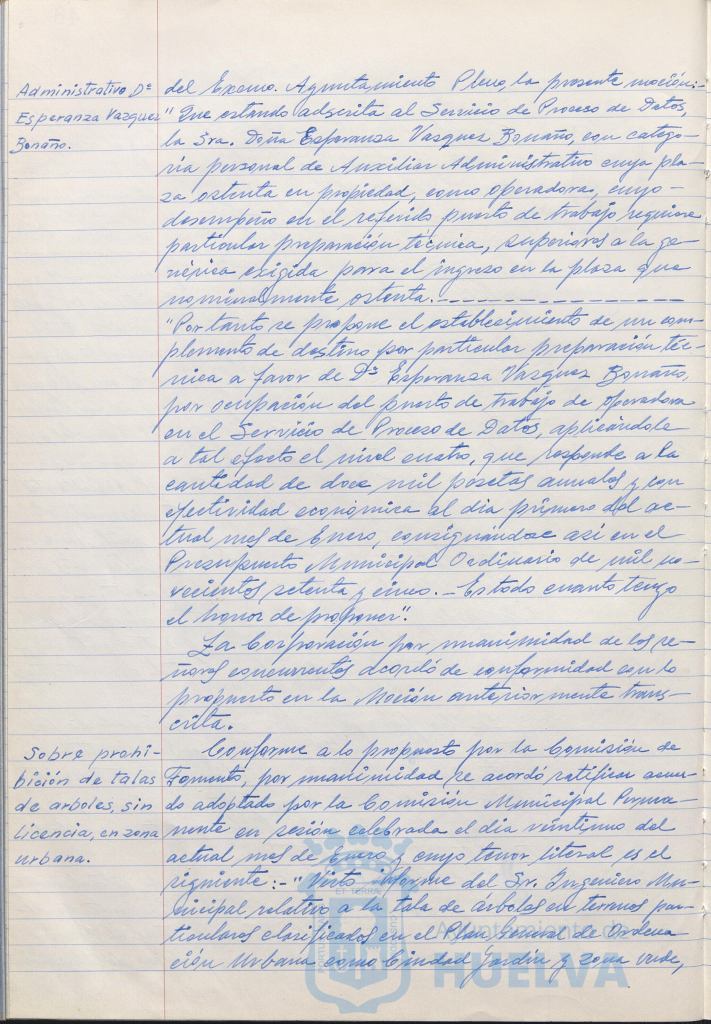 Administrativo Dª
Esperanza Vazquez
Bonaño.
del Excmo. Ayuntamiento Pleno, la presente moción:-
"Que estando adscrita al Servicio de Proceso de Datos,
la Sra. Doña Esperanza Vazquez Bonaño, con catego-
ria personal de Auxiliar Administrativo cuya pla-
za ostenta en propiedad, como operadora, cuyo -
desempeño en el referido puesto de trabajo requiere
particular preparación técnica, superiores a la ge-
nérica exigida para el ingreso en la plaza que
nominalmente ostenta.-
"Por tanto se propone el establecimiento de un com-
plemento de destino por particular preparación téc-
nica a favor de Dª Esperanza Vazquez Bonaño,
por ocupación del puesto de trabajo de operadora
en el Servicio de Proceso de Datos, aplicándole
a tal efecto el nivel cuatro, que responde a la
cantidad de doce mil pesetas anuales y con
efectividad económica al dia primero del ac-
tual mes de Enero, consignandose asi en el
Presupuesto Municipal Ordinario de mil no-
vecientos setenta y cinco. - Es todo cuanto tengo
el honor de proponer".
La Corporación por unanimidad de los se-
ñores concurrentes acordó de conformidad con lo
propuesto en la Moción anteriormente trans-
crita.
Sobre prohi-
bición de talas
de arboles, sin
Licencia, en zona
urbana.
Conforme a lo propuesto por la Comisión de
Fomento, por unanimidad se acordó ratificar acuer-
do adoptado por la Comisión Municipal Perma-
nente en sesión celebrada el dia veintiuno del
actual mes de Enero y cuyo tenor literal es el
siguiente:- "Visto informe del Sr. Ingeniero Mu-
nicipal relativo a la tala de arboles en terrenos par-
ticulares clasificados en el Plan General de Ordena-
ción Urbana como Ciudad Jardín y zona verde,
Ayuntamiento de
HUELVA